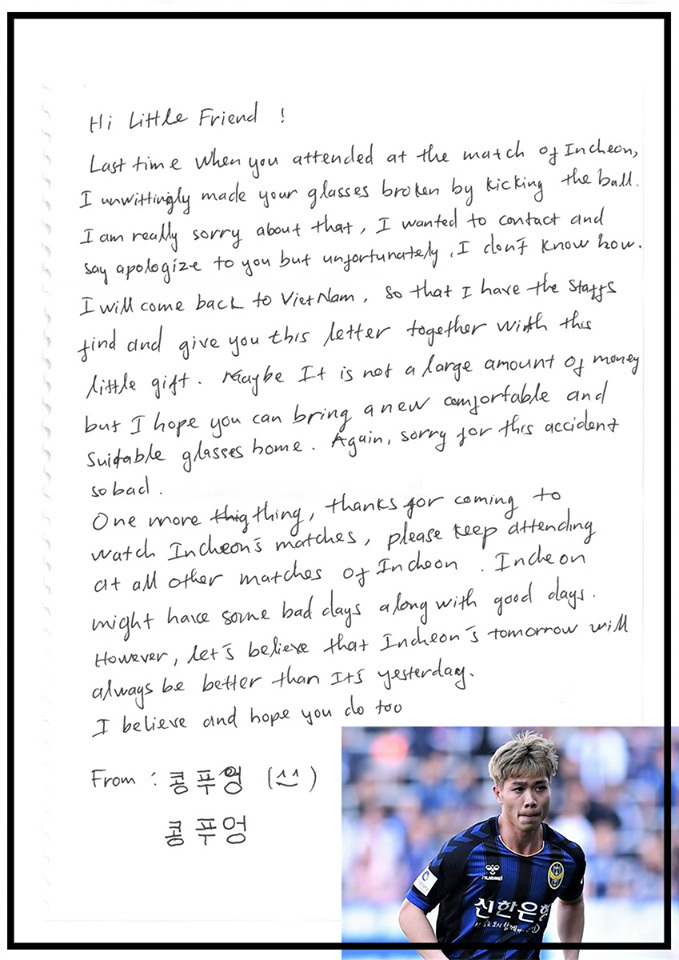 Hi Little Friend !
Last time when you attended at the match of Incheon,
I unwittingly made your glasses broken by kicking the ball.
I am really sorry about that, I wanted to contact and
say apologize to you but unfortunately, I don't know how.
I will come back to VietNam, so that I have the staffs
find and give you this letter together with this
little gift. Maybe It is not a large amount of money
but I hope you can bring a new comfortable and
suitable glasses home. Again, sorry for this accident
so bad.
One more thig thing, thanks for coming to
watch Incheon's matches, please keep attending
at all other matches of Incheon. Incheon
might have some bad days along with good days.
However, let's believe that Incheon's tomorrow will
always be better than It's yesterday.
I believe and hope you do too
From : 콩푸엉 (^^)
콩푸엉
hummel
신한은행